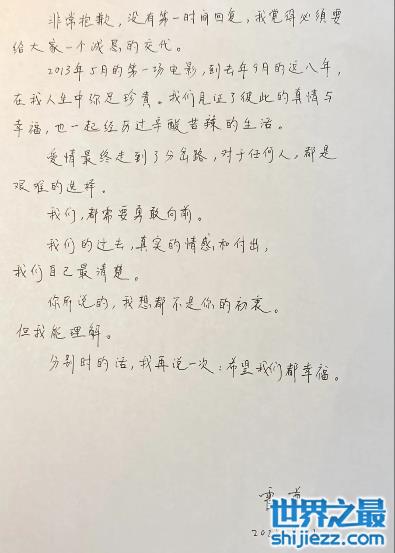 非常抱歉，没有第一时间回复，我觉得必须要
给大家一个诚恳的交代。
2013年5月的第一场电影，到去年9月的近八年，
在我人生中弥足珍贵。我们见证了彼此的真情与
幸福，也一起经历过辛酸苦辣的生活。
爱情最终走到了分岔路，对于任何人，都是
艰难的选择。
我们，都需要勇敢向前。
我们的过去，真实的情感和付出，
我们自己最清楚。
你所说的，我想都不是你的初衷。
但我能理解。
分别时的话，我再说一次：希望我们都幸福。
世界之最
shijiezz.com